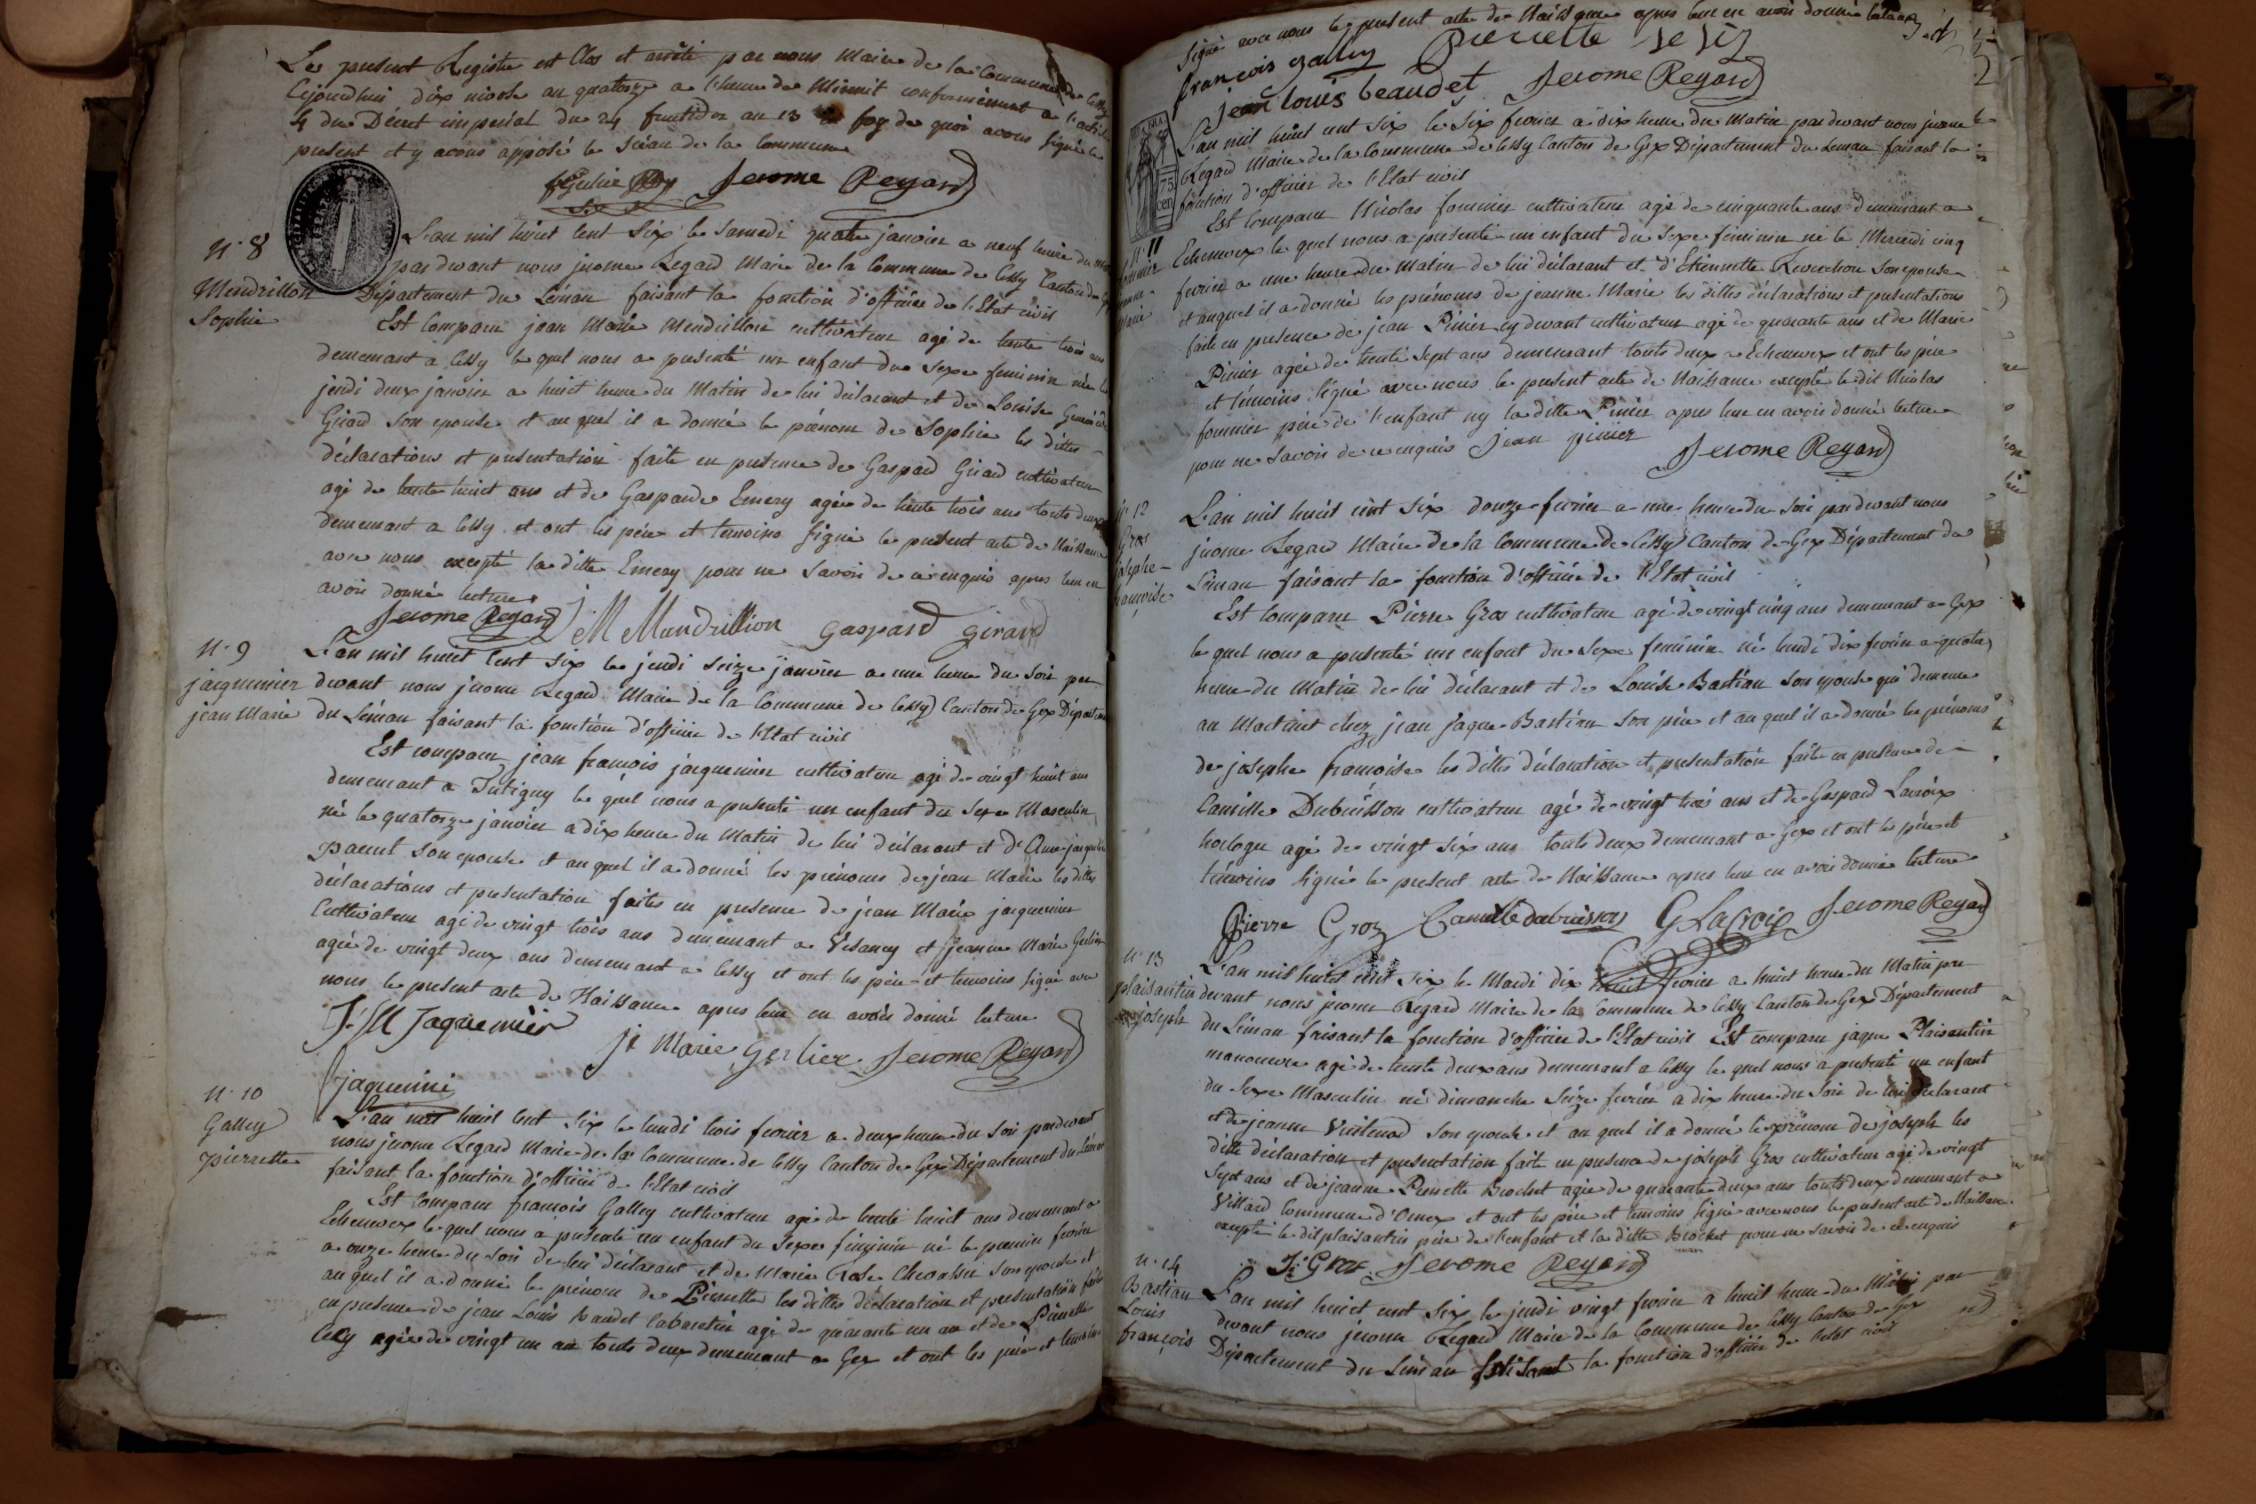 Le present Registre est Clos et arrêté par nous Maire de la Commune de Cessy
Cejourdhui dix nivose an quatorze a l'heure de Minuit conformément a l'article
4 du Décret impérial du 24 fructidor an 13 foy de quoi avons signé le
present et y avons apposé le Sceau de la Commune
Jerome Regard
N. 8
Mendrillon
Sophie
L'an mil huict cent Six le Samedi quatre janvier a neuf heure du matin
par devant nous jerome Regard Maire de la Commune de Cessy Canton de Gex
Département du Léman faisant la fonction d'officier de l'Etat civil
Est Comparu jean Marie Mendrillon cultivateur agé de trente trois ans
demeurant a Cessy le quel nous a presenté un enfant du Sexe feminin née le
jeudi deux janvier a huict heure du Matin de lui déclarant et de Louise
Girard Son epouse et au quel il a donné le prénom de Sophie les dittes
déclarations et presentation faite en presence de Gaspard Girard cultivateur
agé de trente huict ans et de Gasparde Emery agée de trente trois ans touts deux
demeurant a Cessy et ont les père et temoins signé le present acte de Naissance
avec nous excepté la ditte Emery pour ne Savoir de ce enquis apres leur en
avoir donné lecture
Jerome Regard JM Mandrillion gaspard girard
N. 9
jacquemier
jean Marie
L'an mil huict cent Six le jeudi Seize janvier a une heure du Soir par
devant nous jerome Regard Maire de la Commune de Cessy Canton de Gex Département
du Léman faisant la fonction d'officier de l'Etat civil
Est comparu jean francois jacquemier cultivateur agé de vingt huit ans
demeurant a Tutigny le quel nous a presenté un enfant du Sexe Masculin
né le quatorze janvier a dix heure du Matin de lui déclarant et d'Anne
son epouse et au quel il a donné les prénoms de jean Marie les dittes
déclarations et presentation faites en presence de jean Marie jacquemier
Cultivateur agé de vingt trois ans demeurant a Vesancy et jeanne Marie Gerlier
agée de vingt deux ans demeurant a Cessy et ont les père et temoins signé avec
nous le present acte de Naissance apres leur en avoir donné lecture
Jaquemier
Je Marie Gerlier Jerome Regard
jaquemie
N. 10
Galley
pierrette
L'an mil huict cent Six le lundi trois fevrier a deux heure du Soir par devant
nous jerome Regard Maire de la Commune de Cessy Canton de Gex Département du Léman
faisant la fonction d'officier de l'Etat civil
Est Comparu francois Galley cultivateur agé de trente huict ans demeurant a
Echenevex le quel nous a presenté un enfant du Sexe féminin né le premier fevrier
a onze heure du Soir de lui déclarant et de Marie Rose Chevassu Son epouse et
au quel il a donné le prénom de Pierrette les dittes déclaration et presentation faite
en presence de jean Louis Baudet Cabaretier agé de quarante un an et de Pierrette
agée de vingt un an touts deux demeurant a Gex et ont les père et temoins
Signé avec nous le present acte de Naissance apres leur en avoir donné lecture
francois galley pierrette
jean louis beaudet Jerome Regard
2
75
cen
N. 11
L'an mil huict cent Six le Six fevrier a dix heure du Matin par devant nous jerome
Regard Maire de la Commune de Cessy Canton de Gex Département du Leman faisant la
fonction d'officier de l'Etat civil
Est Comparu Nicolas fournier cultivateur agé de cinquante ans demeurant a
Echenevex le quel nous a presenté un enfant du Sexe féminin né le Mercredi cinq
fevrier a une heure du Matin de lui déclarant et d'Etiennette Reverchon Son epouse
et auquel il a donné les prénoms de jeanne Marie les dittes déclarations et presentations
faite en presence de jean Pinier cy devant cultivateur agé de quarante ans et de Marie
Pinier agée de trente Sept ans demeurant touts deux a Echenevex et ont les père
et témoins signé avec nous le present acte de Naissance excepté le dit Nicolas
fournier père de l'enfant ny la ditte Pinier apres leur en avoir donné lecture
pour ne Savoir de ce enquis jean pinier Jerome Regard
N. 12
Gros
josephe
francoise
L'an mil huict cent Six douze fevrier a une heure du Soir par devant nous
jerome Regard Maire de la Commune de Cessy Canton de Gex Département du
Léman faisant la fonction d'officier de l'Etat civil
Est Comparu Pierre Gros cultivateur agé de vingt cinq ans demeurant a Gex
le quel nous a presenté un enfant du Sexe feminin né lundi dix fevrier a quatre
heure du Matin de lui déclarant et de Louise Bastian Son epouse qui demeure
au Martinet chez jean jaque Bastian Son père et au quel il a donné les prénoms
de josephe francoise les dittes déclaration et presentation faite en presence de
Camille Dubuisson cultivateur agé de vingt trois ans et de Gaspard Lacroix
horloger agé de vingt Six ans touts deux demeurant a Gex et ont les père et
témoins Signé le present acte de Naissance apres leur en avoir donné lecture
Pierre Groz Camille dubuisson G Lacroix Jerome Regard
N. 13
plaisantin
joseph
L'an mil huict cent Six le Mardi dix huict fevrier a huict heure du Matin par
devant nous jerome Regard Maire de la Commune de Cessy Canton de Gex Département
du Léman faisant la fonction d'officier de l'Etat civil Est comparu jaque Plaisantin
manoeuvre agé de trente deux ans demeurant a Cessy le quel nous a presenté un enfant
du Sexe Masculin né dimanche Seize fevrier a dix heure du Soir de lui déclarant
et de jeanne Son epouse et au quel il a donné le prénom de joseph les
ditte déclaration et presentation faite en presence de joseph Gros cultivateur agé de vingt
Sept ans et de jeanne Pierrette Brochet agée de quarante deux ans touts deux demeurant a
Villard Commune d'Ornex et ont les père et temoins signé avec nous le present acte de Naissance
excepté le dit plaisantin père de l'enfant et la ditte Brochet pour ne savoir de ce enquis
J. Gros Jerome Regard
N. 14
Bastian
Louis
françois
L'an mil huict cent Six le jeudi vingt fevrier a huict heure du Matin par
devant nous jerome Regard Maire de la Commune de Cessy Canton de Gex
Département du Léman faisant la fonction d'officier de l'etat civil